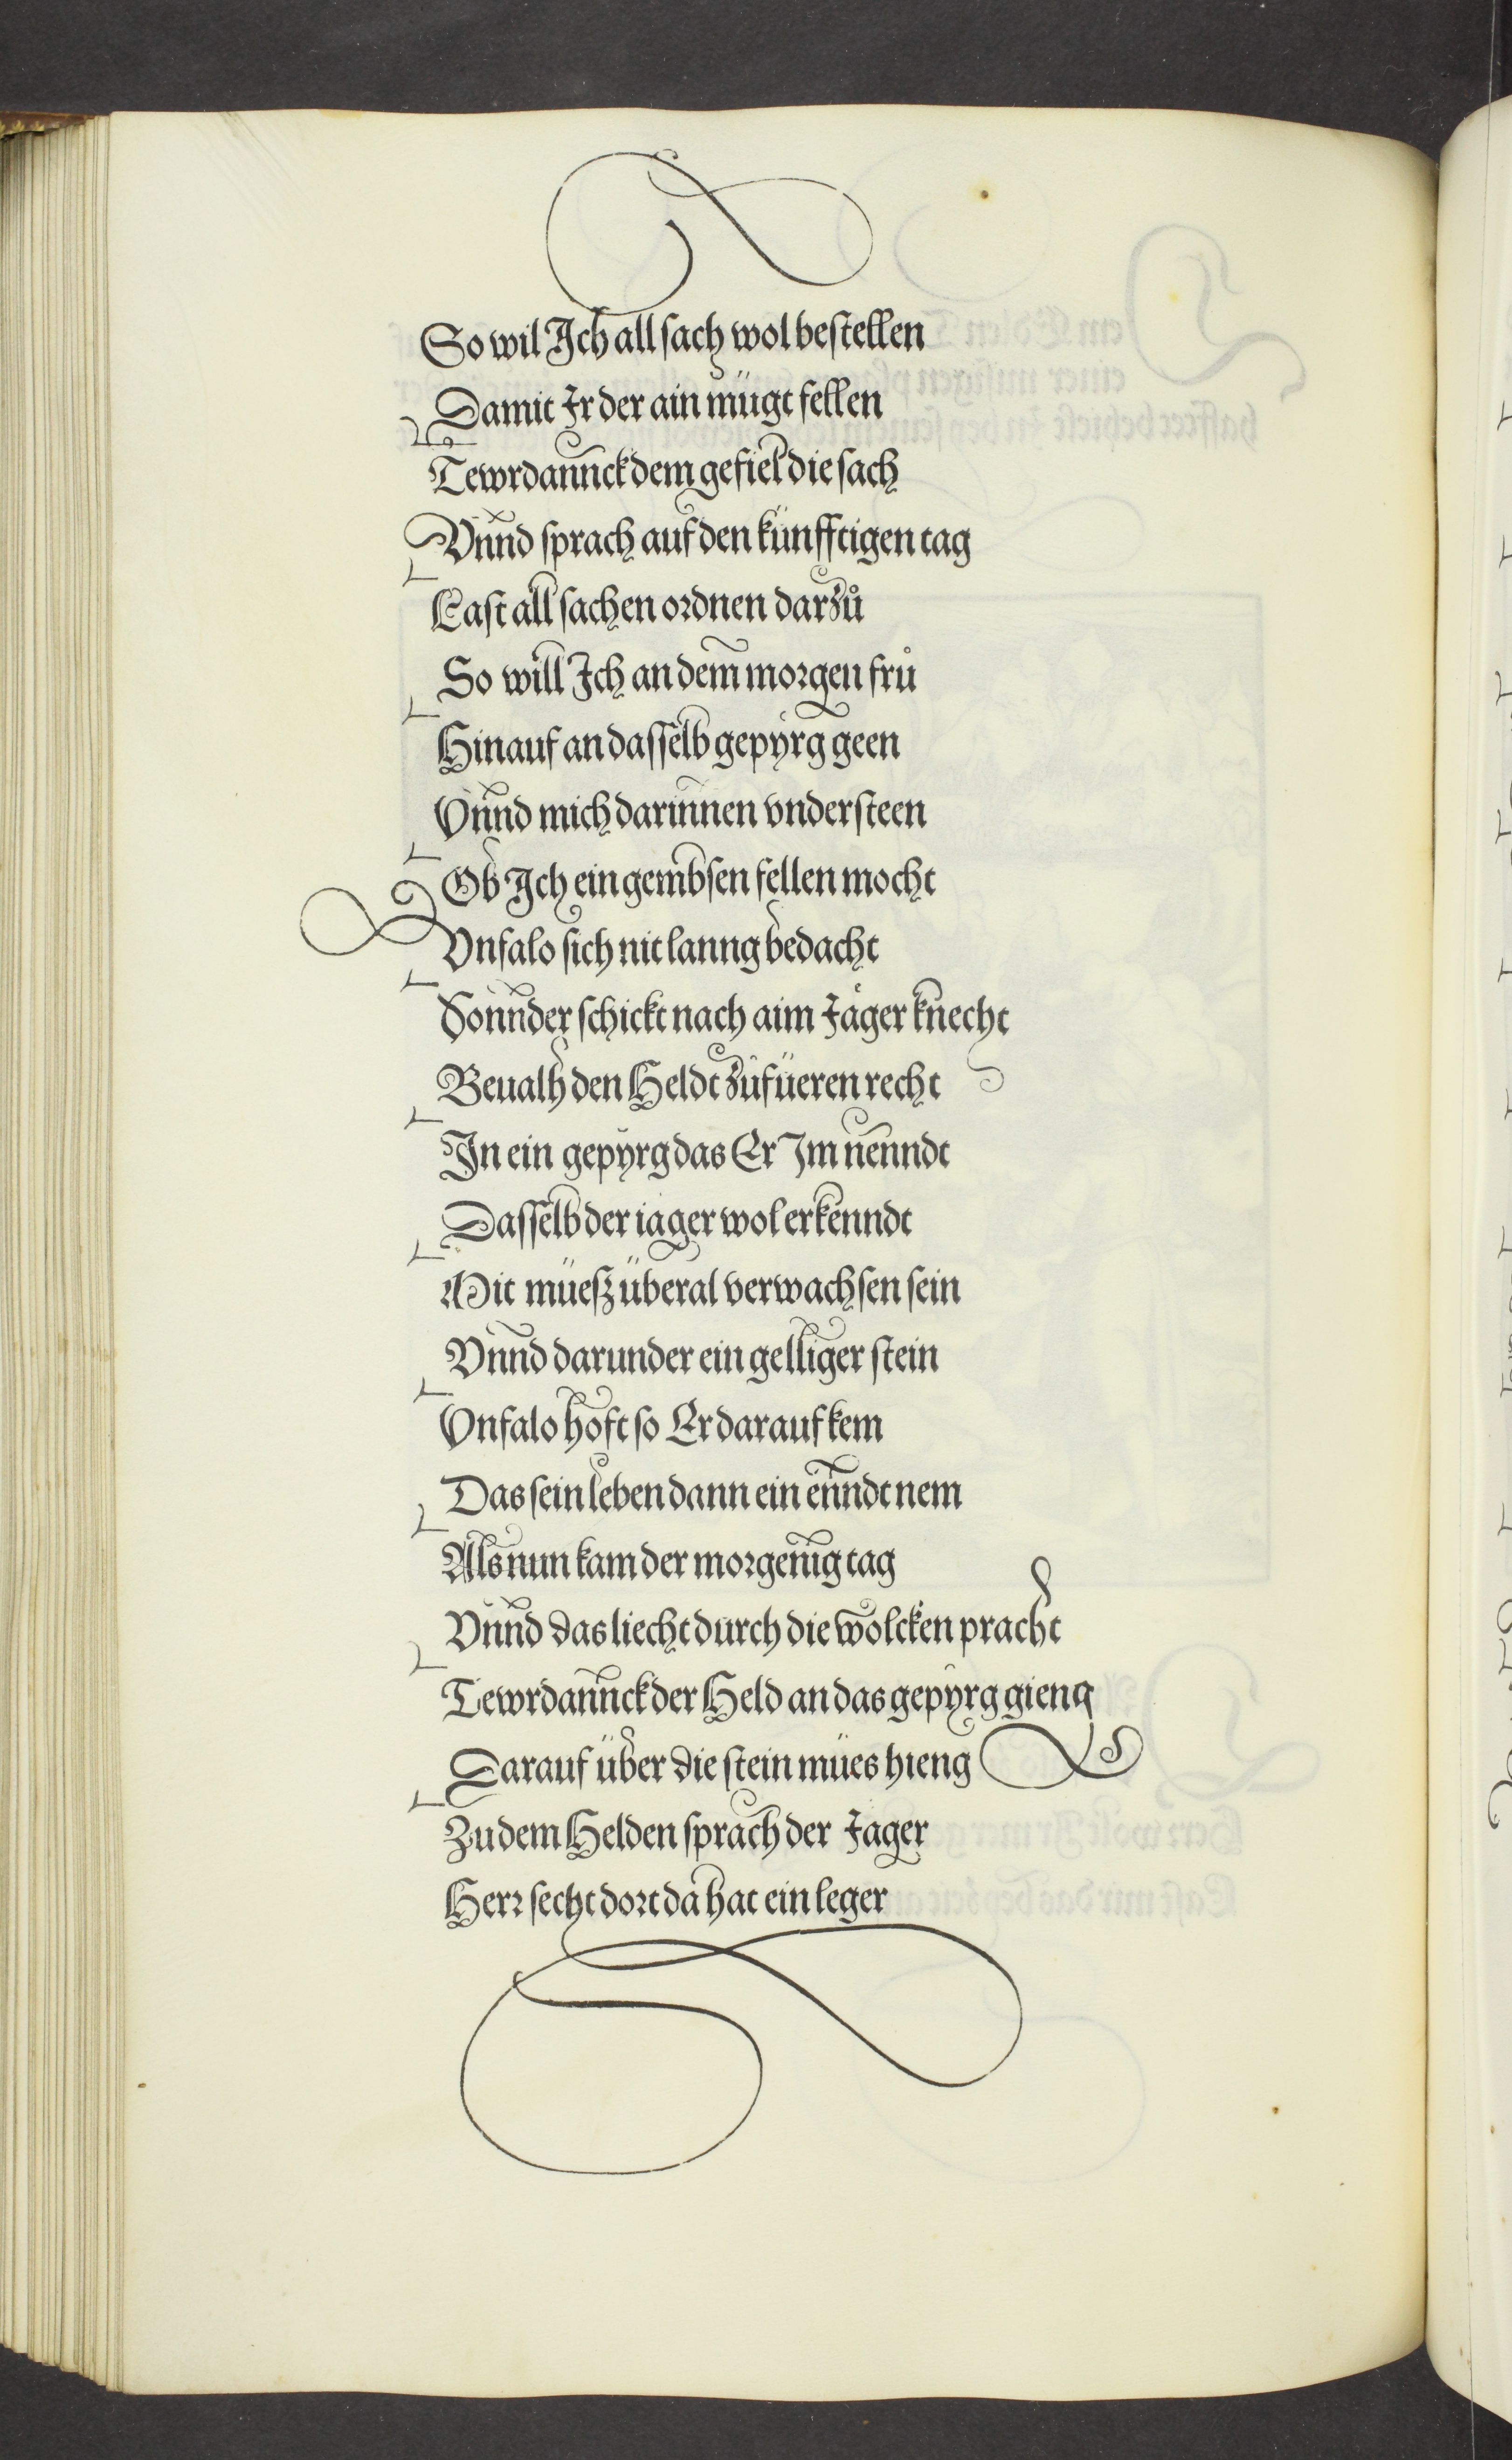 So wil Ich all sach wol bestellen
Damit Ir der ain mügt fellen
Tewrdannck dem gefiel die sach
Vnnd sprach auf den künfftigen tag
Last all sachen ordnen darzů
So will Ich an dem morgen frů
Hinauf an dasselb gepÿrg geen
Vnnd mich darinnen vndersteen
Ob Ich ein gembsen fellen mocht
Vnfalo sich nit lanng bedacht
Sonnder schickt nach aim Jäger knecht
Beualh den Heldt zůfüeren recht
In ein gepÿrg das Er Im nenndt
Dasselb der iäger wol erkenndt
Mit müesz überal verwachsen sein
Vnnd darunder ein gelliger stein
Vnfalo hoft so Er darauf kem
Das sein leben dann ein enndt nem
Als nun kam der morgenig tag
Vnnd das liecht durch die wolcken pracht
Tewrdannck der Held an das gepÿrg gieng
Darauf über die stein mües hieng
Zu dem Helden sprach der Jager
Herr secht dort da hat ein leger